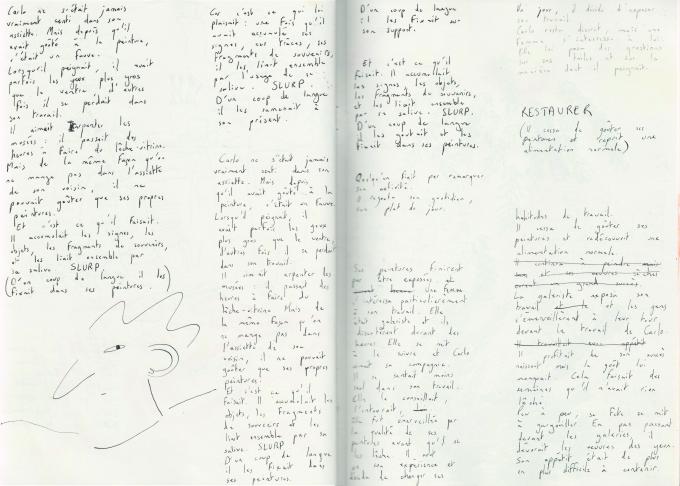 Carlo ne s'était jamais
vraiment senti dans son
assiette. Mais depuis qu'il
avait goûté à la peinture,
c'était un fauve.
Lorsqu'il peignait, il avait
parfois les yeux plus gros
que le ventre, d'autres
fois il se perdait dans
son travail.
Il aimait arpenter les
musées : il passait des
heures à faire du lèche-vitrine.
Mais de la même façon qu'on
ne mange pas dans l'assiette
de son voisin, il ne
pouvait goûter que ses propres
peintures.
Et c'est ce qu'il faisait.
Il accumulait les signes, les
objets, les fragments de souvenirs,
et les liait ensemble par
sa salive. SLURP.
(D'un coup de langue il les)
(fixait dans ses peintures.)
Car c'est ce qui lui
plaisait : une fois qu'il
avait accumulé ses
signes, ses traces, ses
fragments de souvenirs,
il les liait ensemble
par l'usage de sa
salive. SLURP.
D'un coup de langue
il les ramenait à
son présent.
Carlo ne s'était jamais
vraiment senti dans son
assiette. Mais depuis
qu'il avait goûté à la
peinture, c'était un fauve.
Lorsqu'il peignait, il
avait parfois les yeux
plus gros que le ventre,
d'autres fois il se perdait
dans son travail.
Il aimait arpenter les
musées : il passait des
heures à faire du
lèche-vitrine. Mais de
la même façon qu'on
ne mange pas dans
l'assiette de son
voisin, il ne pouvait
goûter que ses propres
peintures.
Et c'est ce qu'il
faisait. Il accumulait les
objets, les fragments
de souvenirs et les
liait ensemble par sa
salive. SLURP
D'un coup de langue
il les fixait dans
ses peintures.
D'un coup de langue
il les fixait sur
son support.
Et c'est ce qu'il
faisait. Il accumulait
les signes, les objets,
les fragments de souvenirs,
et les liait ensemble
par sa salive. SLURP.
D'un coup de langue
il les goûtait et les
fixait dans ses peintures.
Quelqu'un finit par remarquer
son activité.
Il son quotidien,
son plat du jour.
Ses peintures finirent
par être exposées, et
une femme
s'intéressa particulièrement
à son travail. Elle
était galeriste et ils
discutèrent durant des
heures. Elle se mit
à le suivre et Carlo
aimait sa compagnie.
Il se sentait moins
seul dans son travail.
Elle le conseillait,
l'entourait,
fut émerveillée par
la qualité de ses
peintures avant qu'il se
lâche. Il
son expérience et
de changer ses
Un jour, il décida d'exposer
son travail.
Carlo resta discret, mais une
femme s'intéressa à lui.
Elle lui posa des questions
sur ses toiles et sur la
manière dont il peignait.
RESTAURER
(Il cessa de goûter ses
peintures et reprit une
alimentation normale)
habitudes de travail.
Il cessa de goûter ses
peintures et redécouvrit une
alimentation normale.
Il continua à peindre mais
et ses œuvres
un grand succès.
La galeriste exposa son
travail et les gens
s'émerveillèrent à leur tour
devant le travail de Carlo.
Il travaillait sans appétit
Il profitait de son succès
naissant mais le goût lui
manquait. Cela faisait des
semaines qu'il n'avait rien
lâché
Peu à peu, sa faim se mit
à gargouiller. En passant
devant les galeries, il
dévorait les œuvres des yeux.
Son appétit était de plus
en plus difficile à contenir.